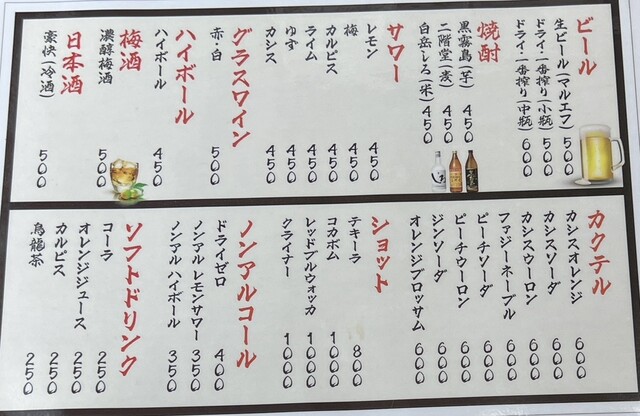 ビール
生ビール(マルエフ) 500
ドライ・一番搾り(小瓶) 500
ドライ・一番搾り(中瓶) 600
焼酎
黒霧島(芋) 450
二階堂(麦) 450
白岳しろ(米) 450
サワー
レモン 450
梅 450
カルピス 450
ライム 450
ゆず 450
カシス 450
グラスワイン
赤・白 500
ハイボール
ハイボール 450
梅酒
濃醇梅酒 500
日本酒
豪快(冷酒) 500
カクテル
カシスオレンジ 600
カシスソーダ 600
カシスウーロン 600
ファジーネーブル 600
ピーチソーダ 600
ピーチウーロン 600
ジンソーダ 600
オレンジブロッサム 600
ショット
テキーラ 800
コカボム 1000
レッドブルウォッカ 1000
クライナー 1000
ノンアルコール
ドライゼロ 400
ノンアルレモンサワー 350
ノンアルハイボール 350
ソフトドリンク
コーラ 250
オレンジジュース 250
カルピス 250
烏龍茶 250